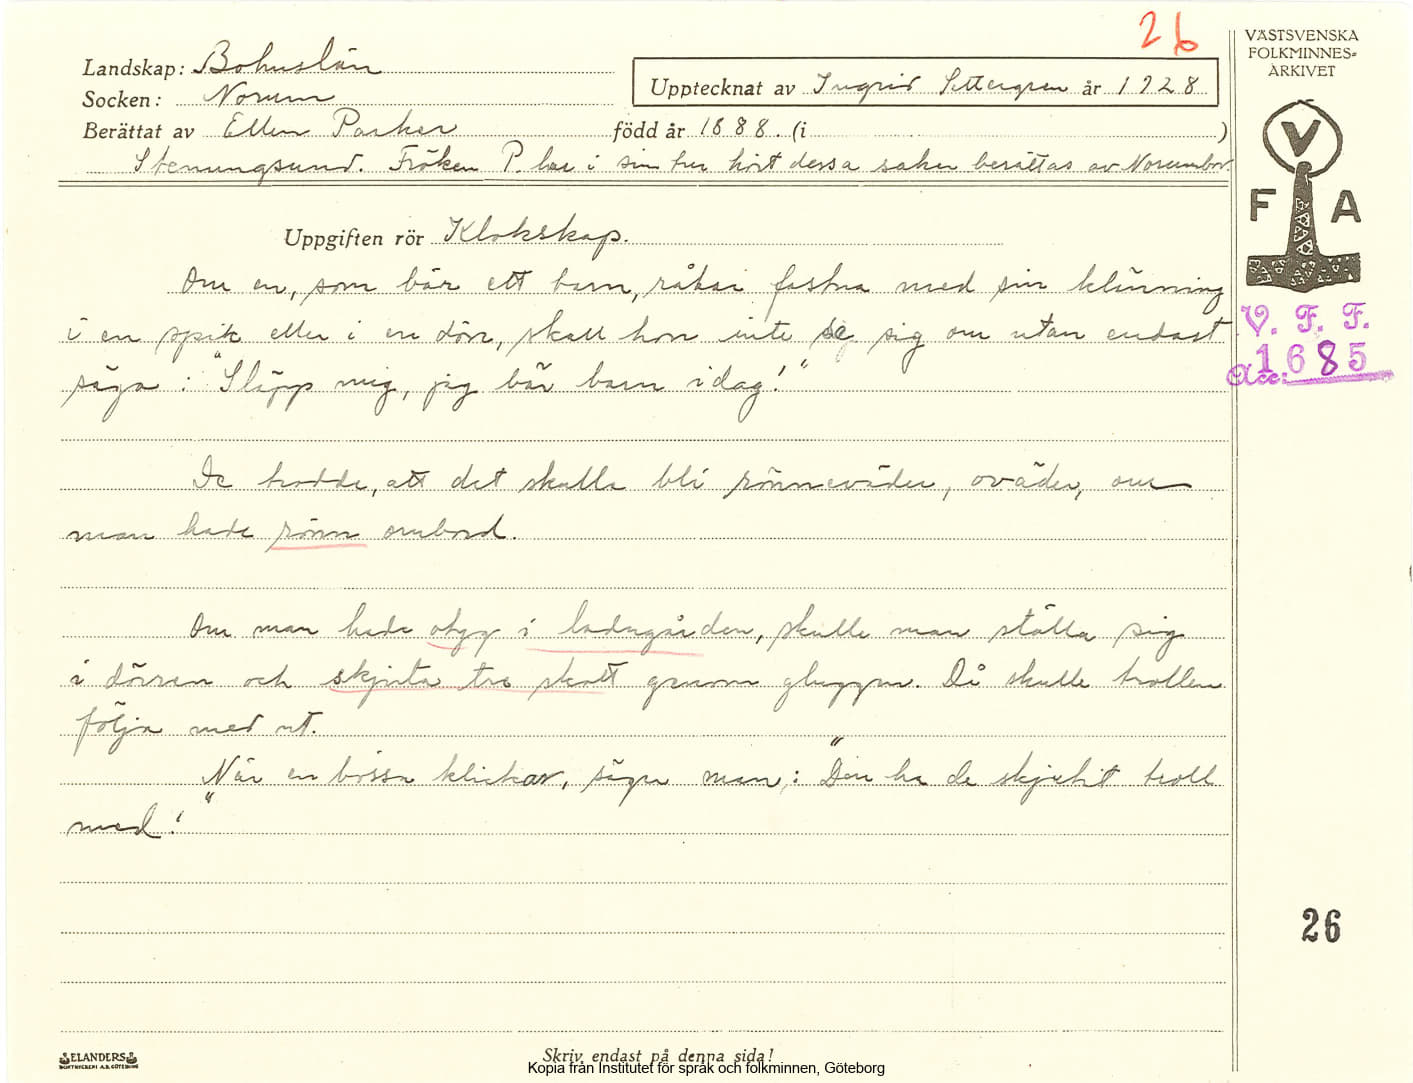 26
Landskap: Bohuslän
Socken: Norum
Upptecknat av Ingrid Settergren år 1928
Berättat av Ellen Parker född år 1888. (i )
Stenungsund. Fröken P. har i sin tur hört dessa saker berättas av Norumbor.
VÄSTSVENSKA
FOLKMINNES=
ARKIVET
V
F A
V. F. F.
Acc: 1685
Uppgiften rör Klokskap.
Om en, som bär ett barn, råkar fastna med sin klänning
i en spik eller i en dörr, skall hon inte se sig om utan endast
säga: "Släpp mig, jag bär barn idag!"
De trodde, att det skulle bli rönneväder, oväder, om
man hade rönn ombord.
Om man hade otyg i ladugården, skulle man ställa sig
i dörren och skjuta tre skott genom gluggen. Då skulle trollen
följa med ut.
När en bössa klickar, säger man: "Den ha de skjutit troll
med!"
26
ELANDERS
BOKTRYCKERI A.B. GÖTEBORG
Skriv endast på denna sida!
Kopia från Institutet för språk och folkminnen, Göteborg